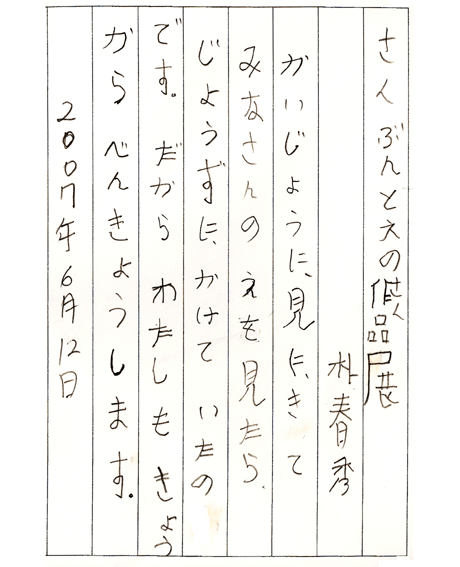 さんぶんとえの作品展
朴春秀
かいじょうに、見に、きて
みなさんの えを見たら、
じょうずに、かけて いたの
です。だから わたしも きょう
から べんきょうします。
2007年6月12日